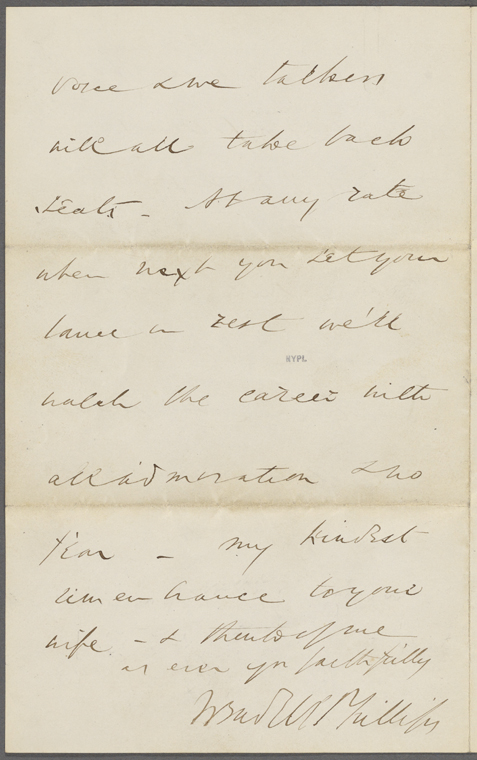 voice & we talkers
will all take back
seats - At any rate
when next you set your
lance in rest we'll
NYPL
watch the career with
all admiration & no
fear - My kindest
remembrance to your
wife - & think of me
as ever yrs faithfully
Wendell Phillips